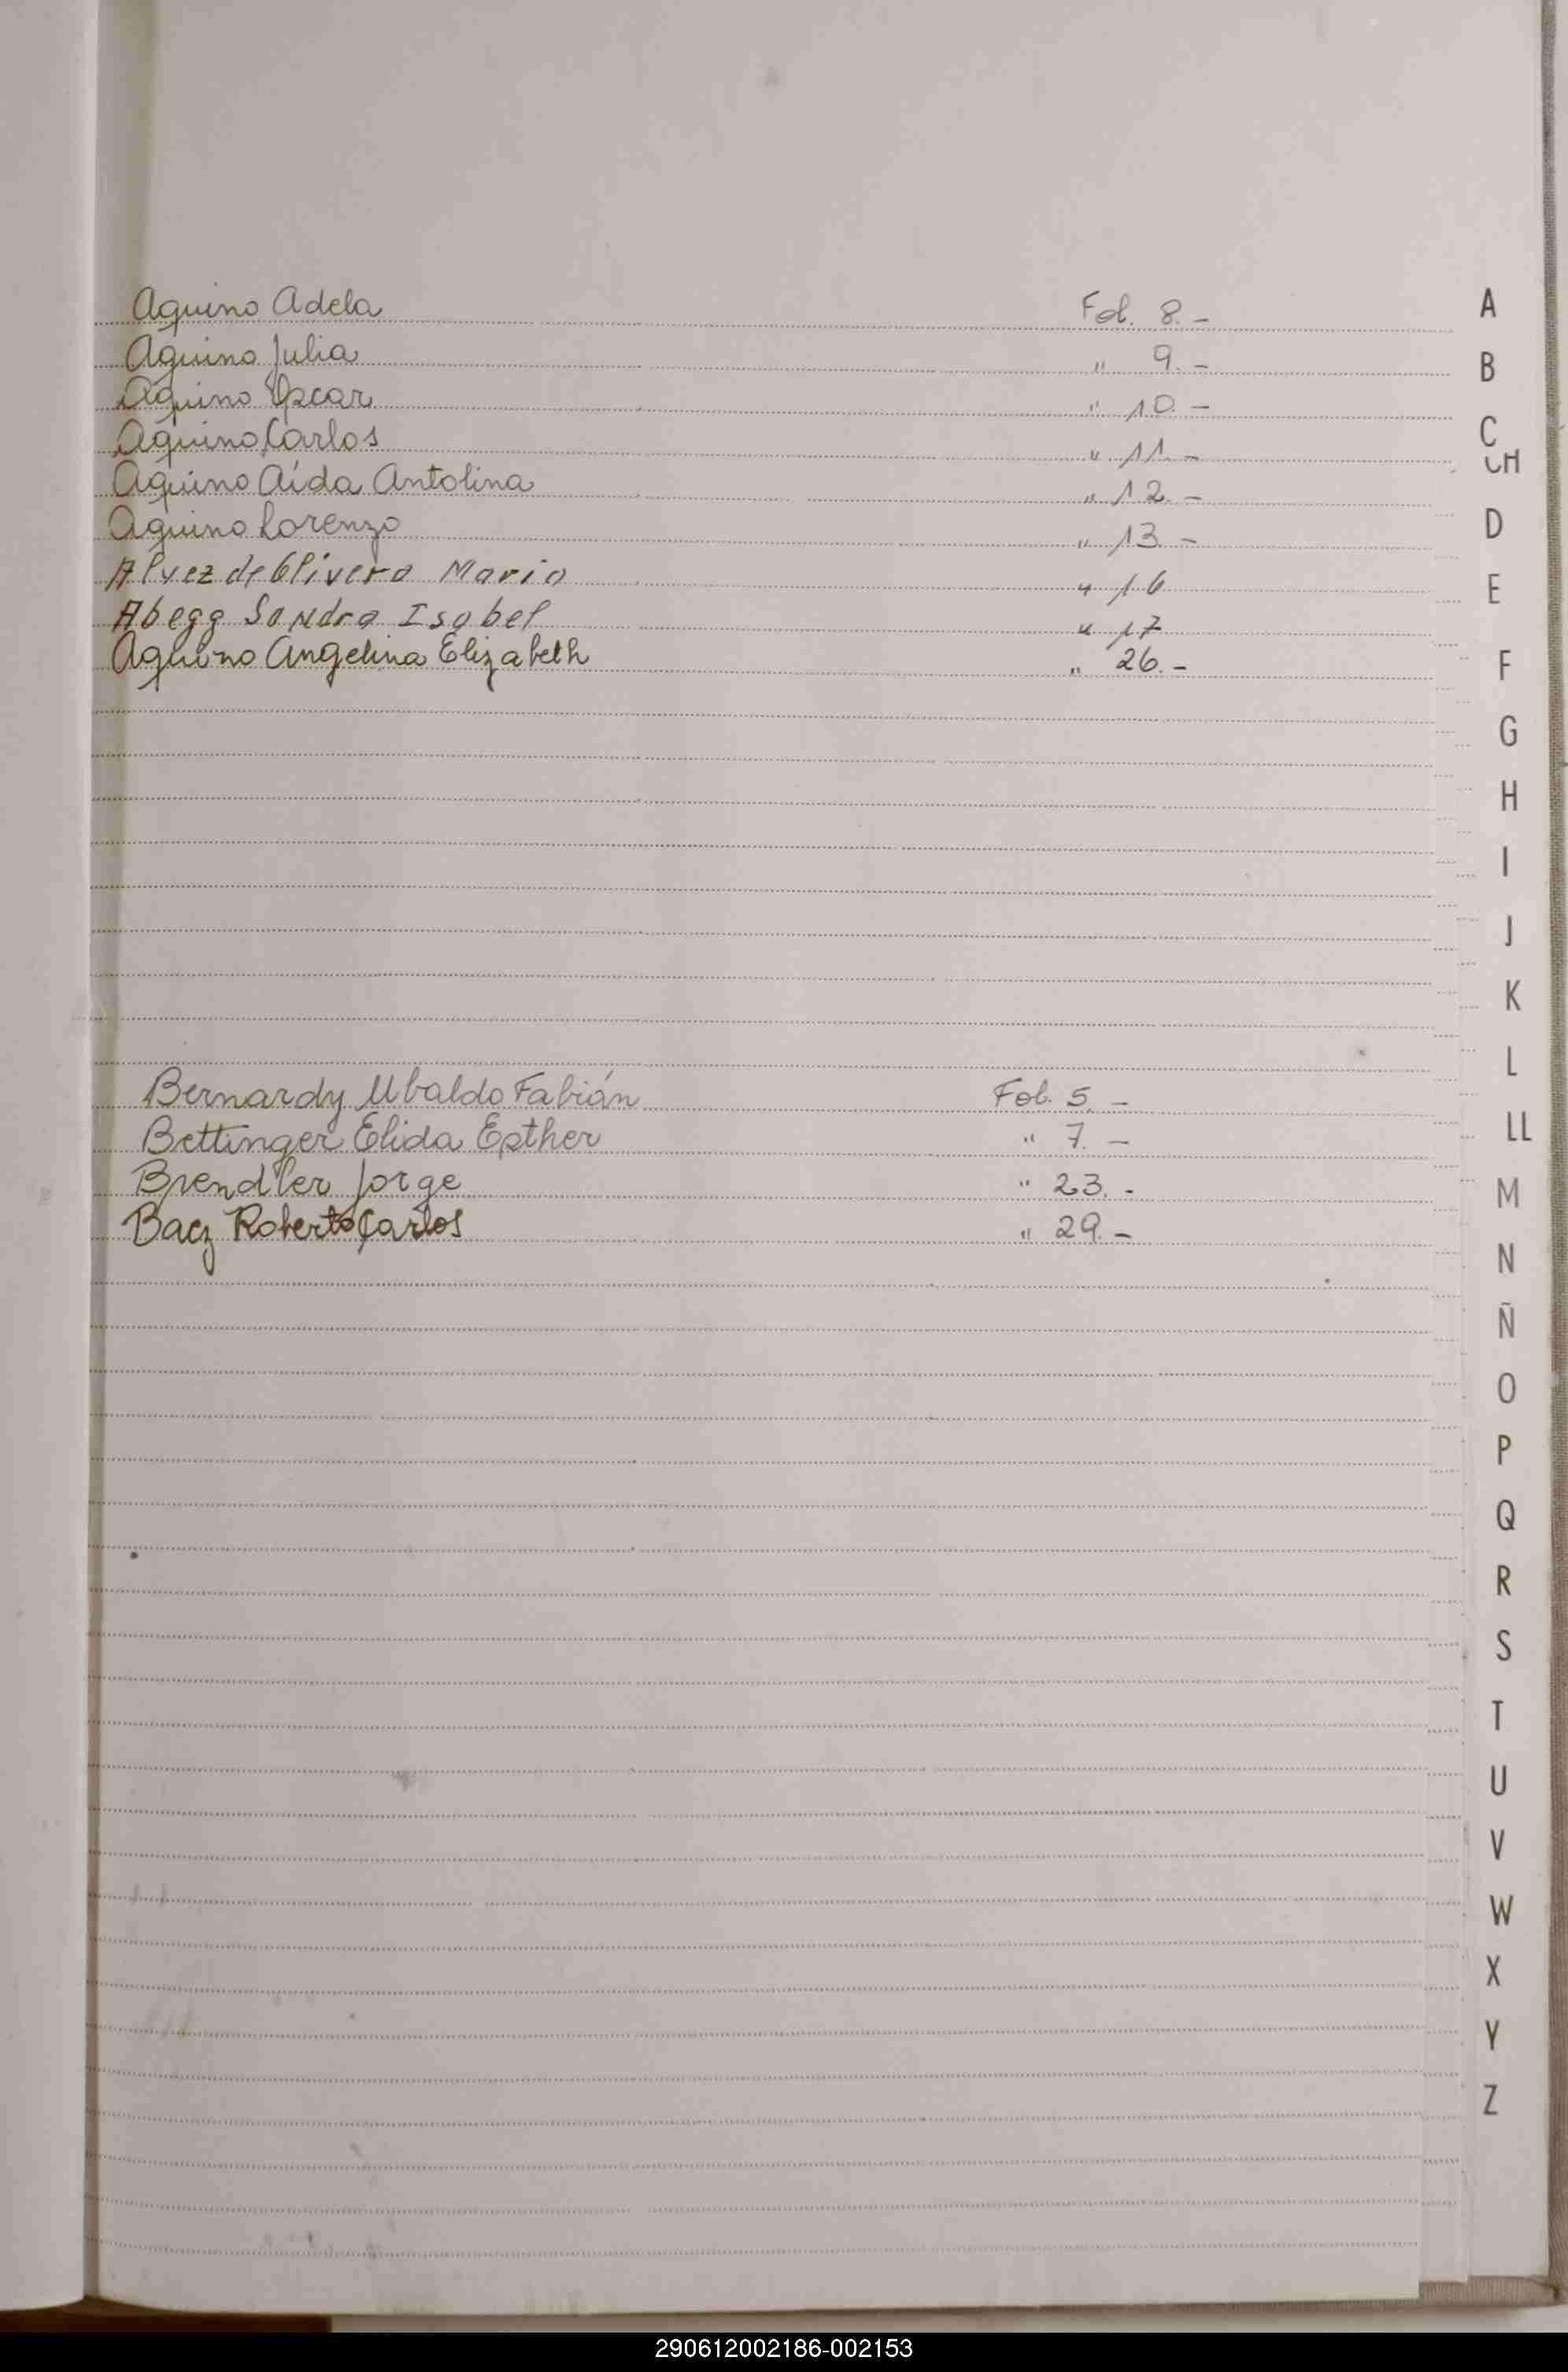 Aquino Adela Fol. 8.-
Aquino Julia " 9.-
Aquino Oscar " 10.-
Aquino Carlos " 11.-
Aquino Aída Antolina " 12.-
Aquino Lorenzo " 13.-
Alvez de Olivera Mario " 16
Abegg Sandra Isabel " 17
Aquino Angelina Elizabeth " 26.-
Bernardy Ubaldo Fabián Fol. 5.-
Bettinger Elida Esther " 7.-
Brendler Jorge " 23.-
Baez Roberto Carlos " 29.-
A
B
C
CH
D
E
F
G
H
I
J
K
L
LL
M
N
Ñ
O
P
Q
R
S
T
U
V
W
X
Y
Z
290612002186-002153